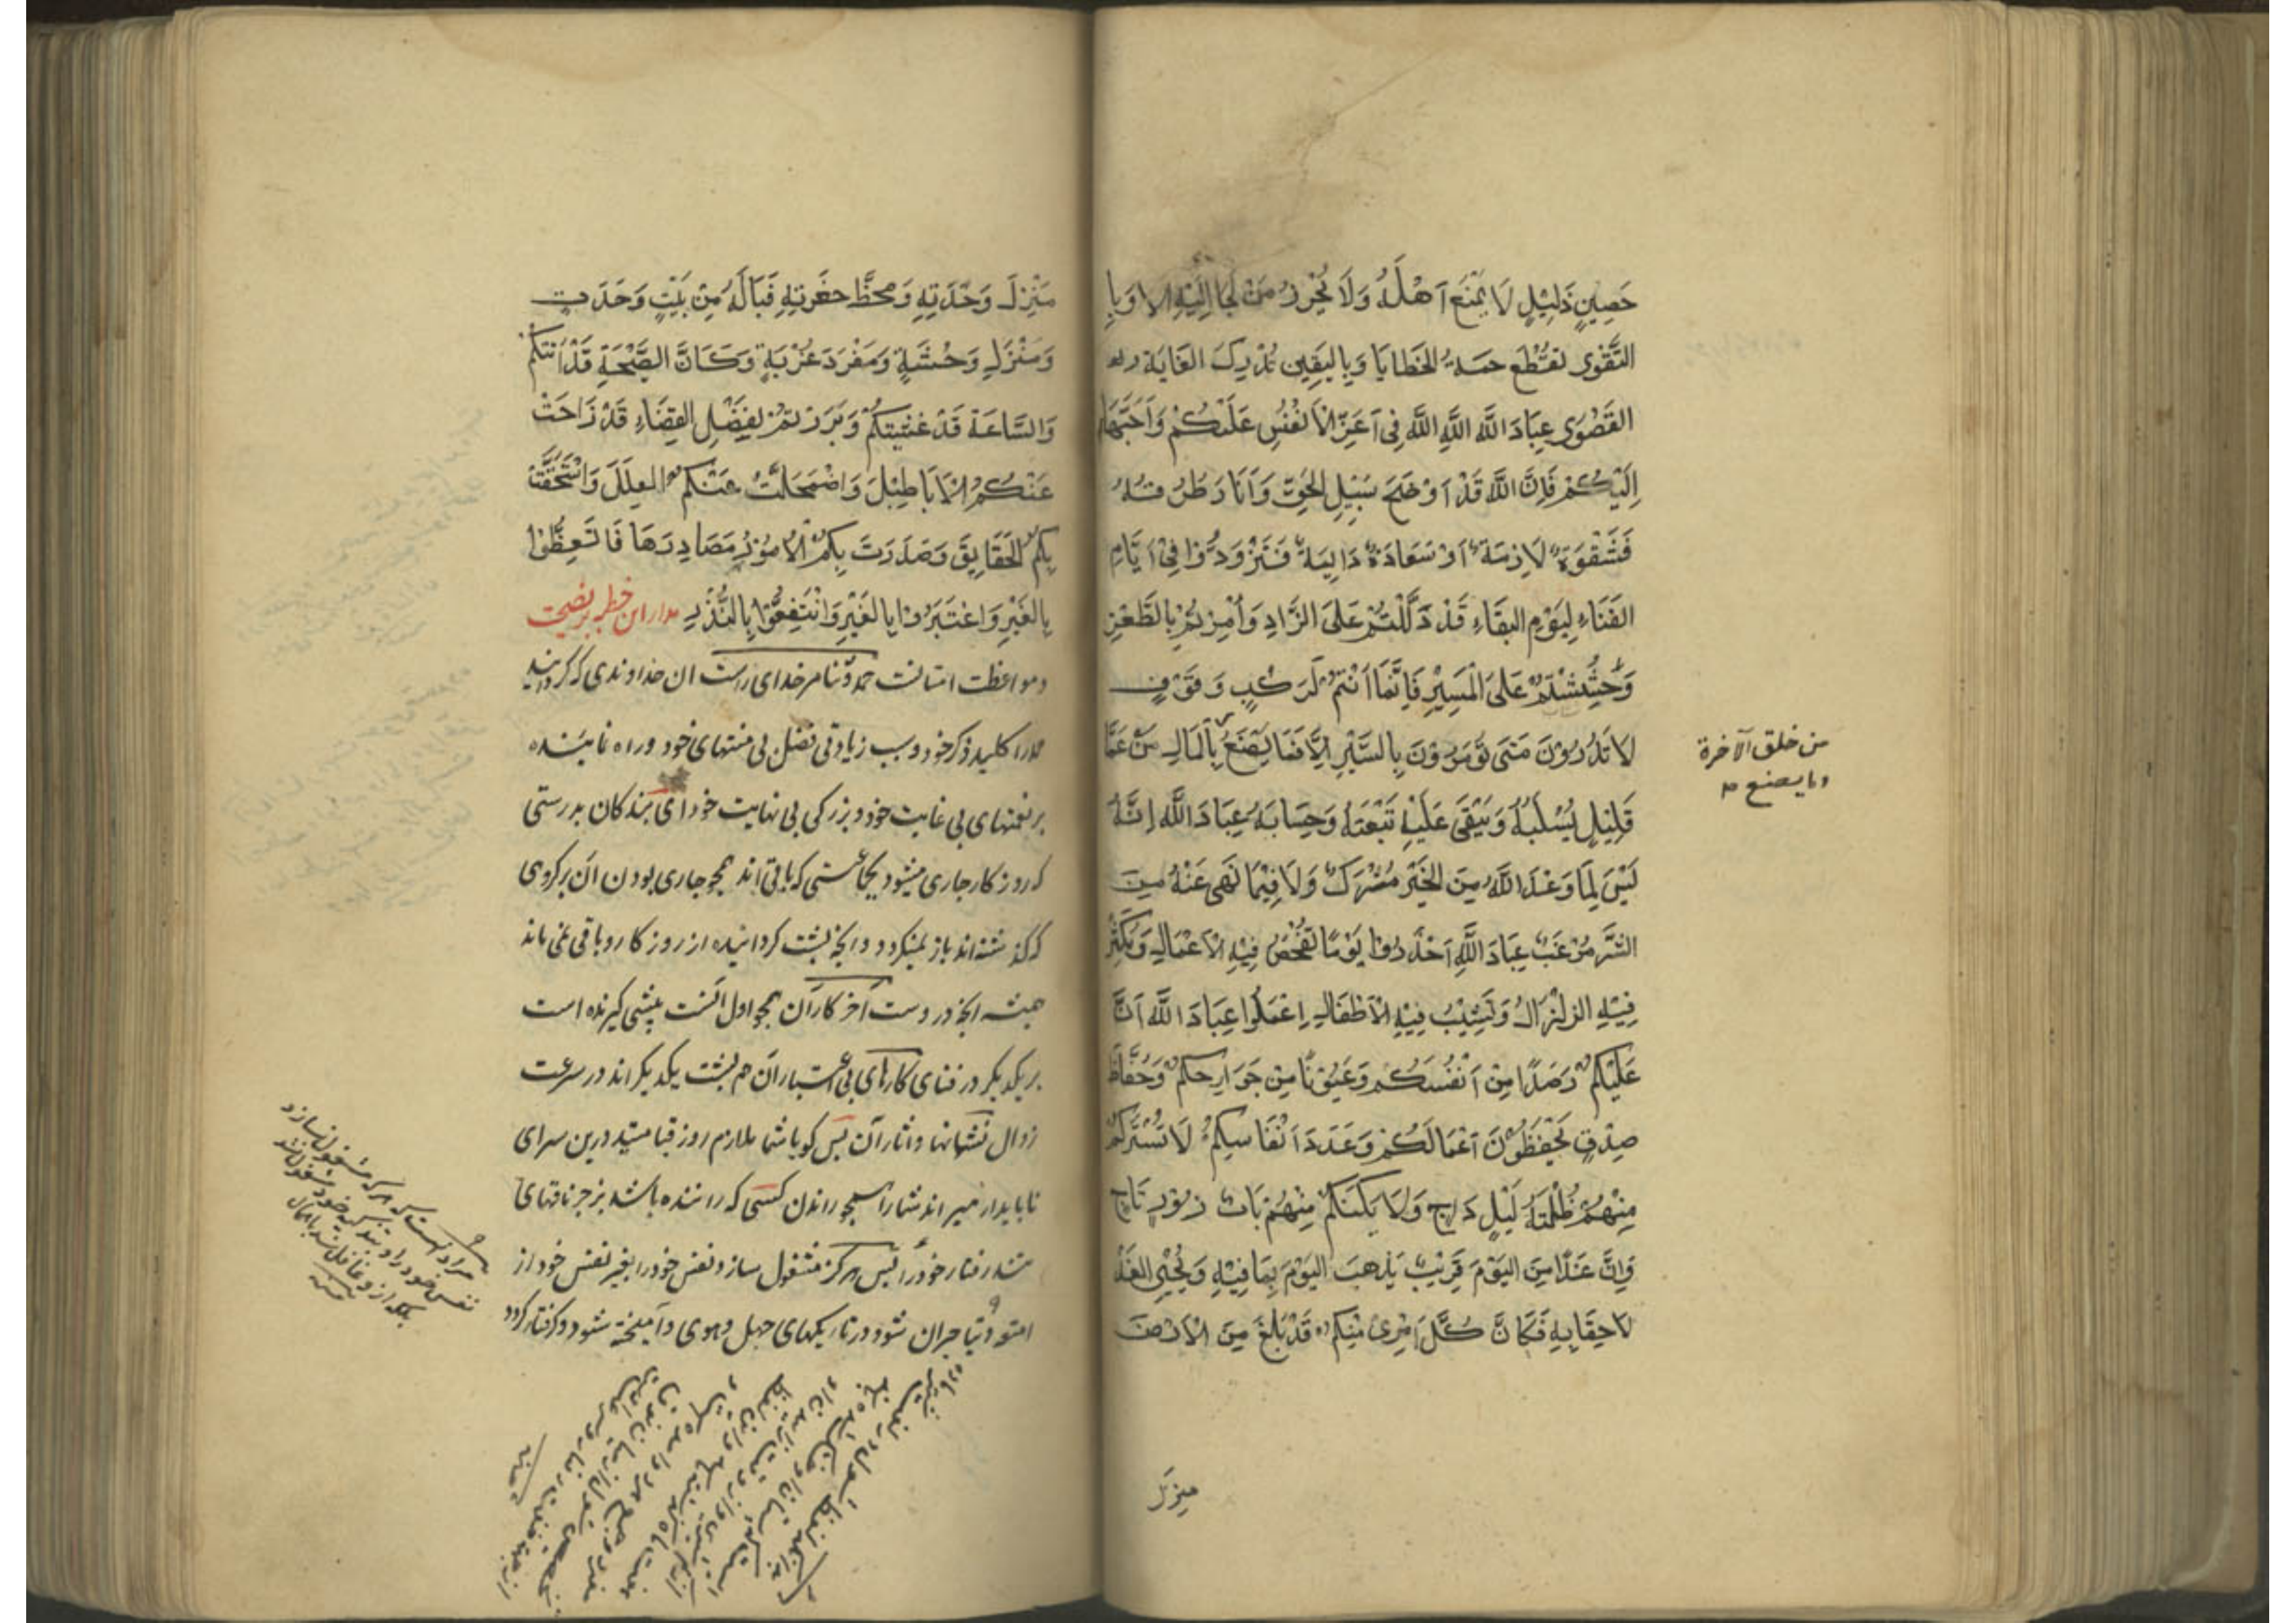 حَصِينٍ ذَلِيلٍ لَا يَمْنَعُ اَهْلَهُ وَلَا يُحْرِزُ مَنْ لَجَا اِلَيْهِ الا وَبِا
التَّقْوى تقْطَع حمة الخَطَايَا وَبِاليَقِينِ تُدْرِكَ الغَايَة
القَصْوَى عِبَادَ اللَّه اللَّهَ اللَّه فِى اَعَزِّ الاَنْفُسِ عَلَيْكُمْ وَاَحَبَّهَا
اِلَيْكُمْ فَاِنَّ اللَّه قَدْ اَوْضَحَ سَبِيلِ الحَقِّ وَاَنَارَ طُرُقهُ
فَشَقْوَة لَازِمَة اَوْ سَعَادَة دَايِمَة فَتَزَوَّدُوْا فِىْ اَيَّامِ
الفَنَاءِ لِيَوْمِ البَقَاءِ قَدْ دَلَلْتُمْ عَلىَ الزَّادِ وَاُمِرْتُمْ بِالظَّعْنِ
وَحُثِثْتُمْ عَلىَ المَسِيْرِ فَاِنَّمَا اَنْتُمْ كَرَكْبٍ وَقوْفٍ
لَا تَدْرُوْنَ مَتىَ تُؤمَرُوْنَ بِالسَّيْرِ اِلَّا فَمَا يَصْنَعُ بِالمَالِ مَنْ عَمَّا
من خلق الآخرة
وما يصنع
قَلِيْلٍ يُسْلَبُهُ وَيَبْقَى عَلَيْهِ تَبْعَتَهُ وَحِسَابَهُ عِبَادَ اللَّه اِنَّهُ
لَيْسَ لِمَا وَعَدَ اللَّهُ مِنَ الخَيْرِ مُتْرَكٌ وَلَا فِيْمَا نَهَى عَنْهُ مِنَ
الشَّرِّ مَرْغَبٌ عِبَادَ اللَّهِ اَحْذَرُوا يَوْمًا تفْحَصُ فِيْهِ الاَعْمَالِ وَيَكْثُر
فِيْهِ الزلْزَالُ وَتَشِيْبُ فِيْهِ الاَطْفَالِ اِعْمَلُوا عِبَادَ اللَّه اَنَّ
عَلَيْكُمْ رَصَدًا مِنْ اَنْفُسَكُمْ وَعَيُوْنًا مِنْ جَوَارِحِكُمْ وَحُفَّاظَ
صِدْقٍ يَحْفَظُوْنَ اَعْمَالَكُمْ وَعَدَدَ اَنْفَاسِكُمْ لَا تَسْتُرَكُمْ
مِنْهُمْ ظُلْمَةُ لَيْلٍ دَاجٍ وَلَا يَكَنَكُمْ مِنْهُمْ بَاب رتَاجٍ
وَاِنَّ غَدًا مِنَ اليَوْمَ قَرِيْبٌ يَذْهَبَ اليَوْمَ بِمَا فِيْهِ وَيَجْئِ الغَدُ
لاحِقَا بِهِ فَكَاَنَّ كُلَّ اَمْرِئٍ مِنْكُمْ قَدْ بَلَغَ مِنَ الاَرْض
منزل
مَنْزِلَ وَحْدَتِهِ وَمحَطَّ حفَرتِهِ فَيَالَهُ مِنْ بَيْتٍ وَحَدَتٍ
وَمَنْزَلِ وَحْشَةٍ وَمَفْرَدَ غُرْبَةٍ وَكَاَنَّ الصَّيْحَةِ قَدْ اَتتكُمْ
وَالسَّاعَةَ قَدْ غشيَتكُمْ وَبَرَزْتُمْ لِفَصْلِ القَضَاءِ قَدْ زَاحَتْ
عَنْكُمُ الاَبَاطِيْلَ وَاضْمَحَلَّتْ عَنْكُمُ العِلَلَ وَاسْتَحَقَّتْ
بِكُمُ الحَقَايِقَ وَصَدَرَتَ بِكُمُ الاُمُوْرُ مَصَادِرَهَا فَاتَعِظُوْا
بِالعَبْرِ وَاعْتَبَرُوْا بِالغَيْرِ وَانْتَفِعُوْا بِالنُّذُرِ مدار اين خطبه بر نصيحت
و مواعظت امتانست حمد و ثنا مر خداى راست ان خداوندى كه كردانيد
حمد را كليد ذكر خود و سبب زيادتى فضل بى منتهاى خود و راه نماينده
بر نعمتهاى بى غايت خود و بزركى بى نهايت خود اى بندكان بدرستى
كه روزكار جارى ميشود بجماعتى كه باقى اند همچو جارى بودن آن بر كروهى
كه كذشته اند باز نميكردد و انچه پشت كردانيده از روزكار و باقى نمى ماند
هميشه انچه در وست آخر كار آن همچو اول آنست پيشى كيرنده است
بر يكديكر در فناى كارهاى بى اعتبار آن هم پشت يكديكراند در سرعت
زوال نشانها و اثار آن پس كويا شما ملازم روز قيامتيد درين سراى
ناپايدار ميراند شما را همچو راندن كسى كه راننده باشد بزجر ناقتهاى
تند رفتار خود را پس هركز مشغول سازد نفس خود را بغير نفس خود از
امتعه دنيا حيران شود در تاريكيهاى جهل و هوى و آميخته شود و كرفتار كردد
مراد آنست كه هركه مشغول نسازد